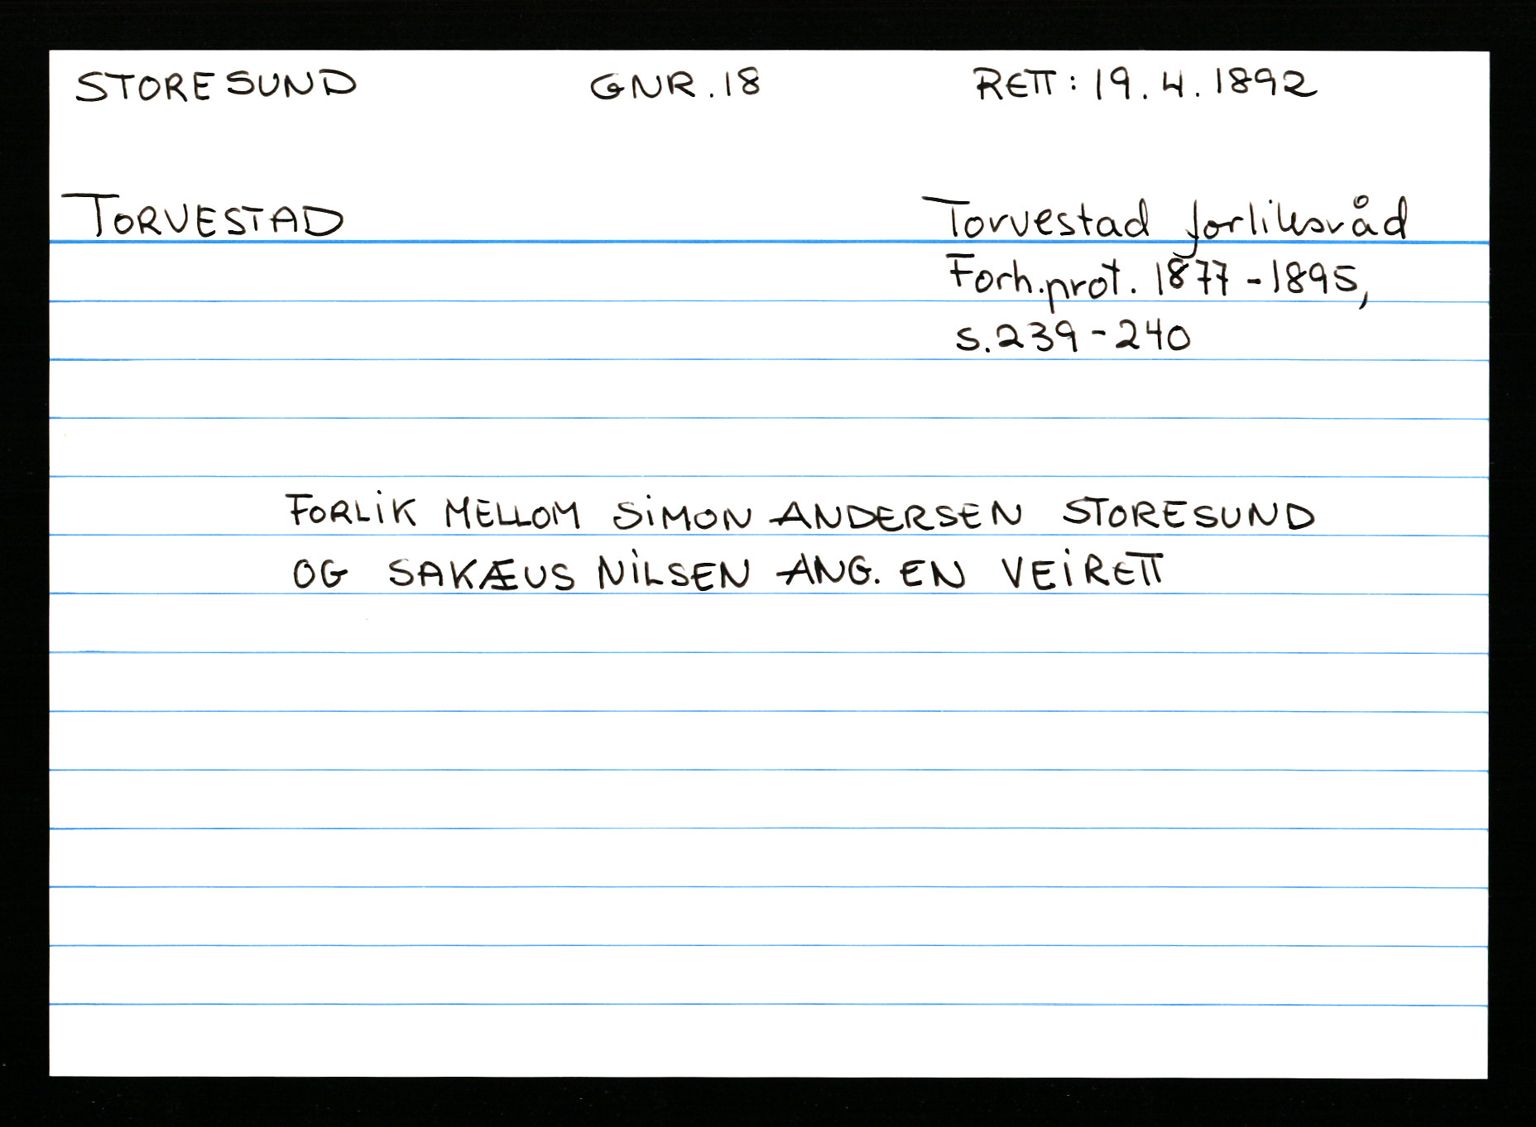 STORESUND GNR. 18 RETT: 19.4.1892
TORVESTAD Torvestad forliksråd
Forh.prot. 1877-1895,
s. 239-240
FORLIK MELLOM SIMON ANDERSEN STORESUND
OG SAKÆUS NILSEN ANG. EN VEIRETT